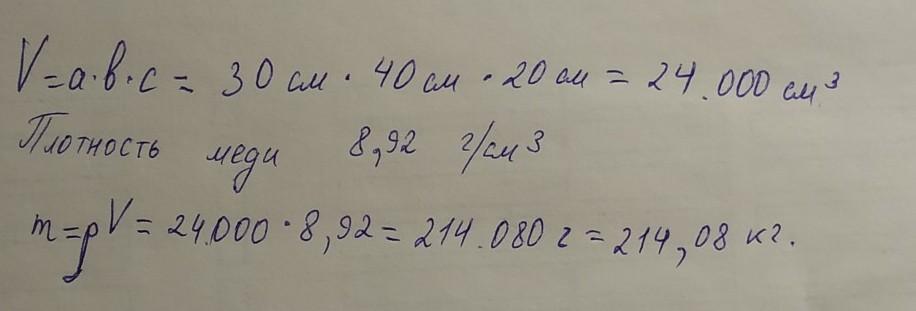 V=a·b·c = 30 см · 40 см · 20 см = 24.000 см³
Плотность меди 8,92 г/см³
m=ρV= 24.000 · 8,92 = 214.080 г = 214,08 кг.